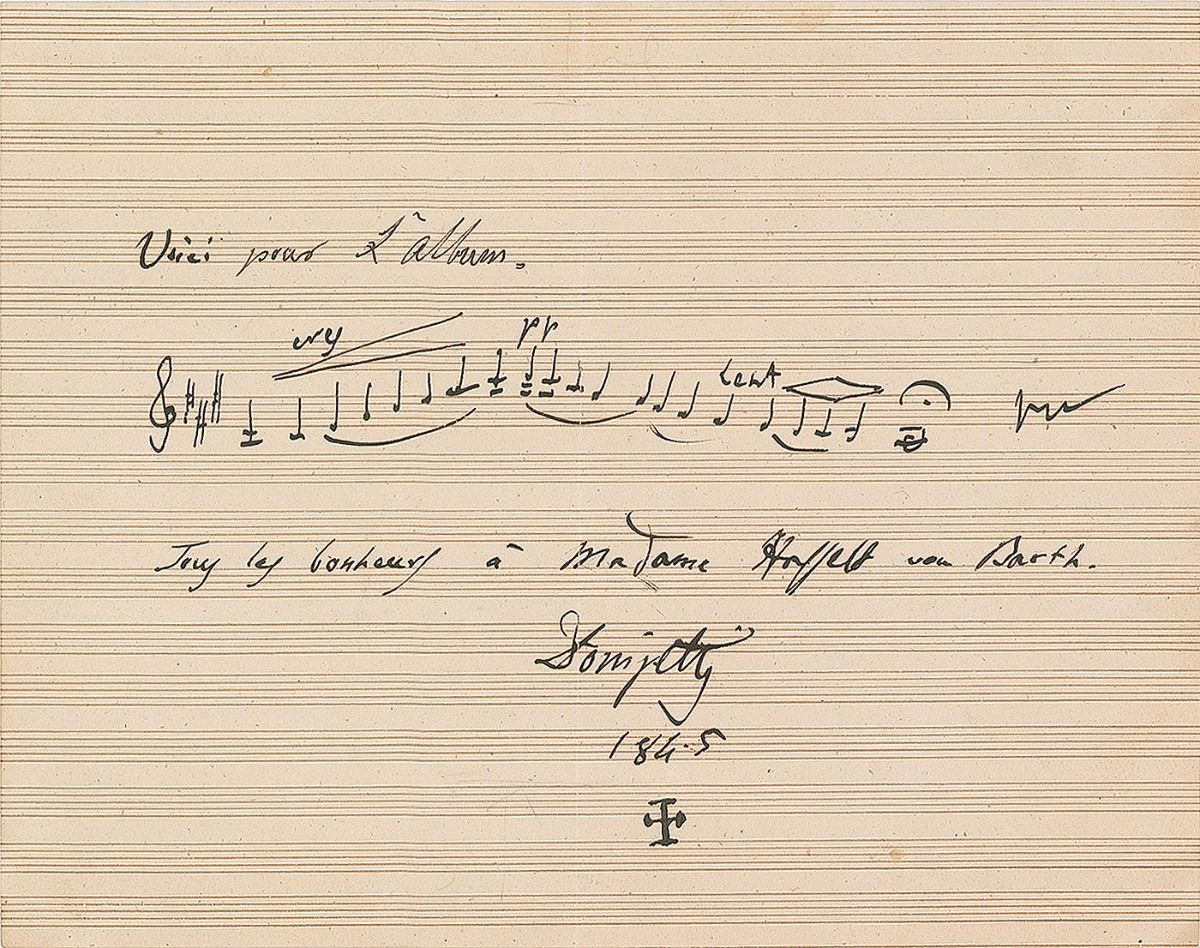 Voici pour L'album.
cres
pp
Lent
Tous les bonheurs à Madame Hasselt von Barth.
Donizetti
1845